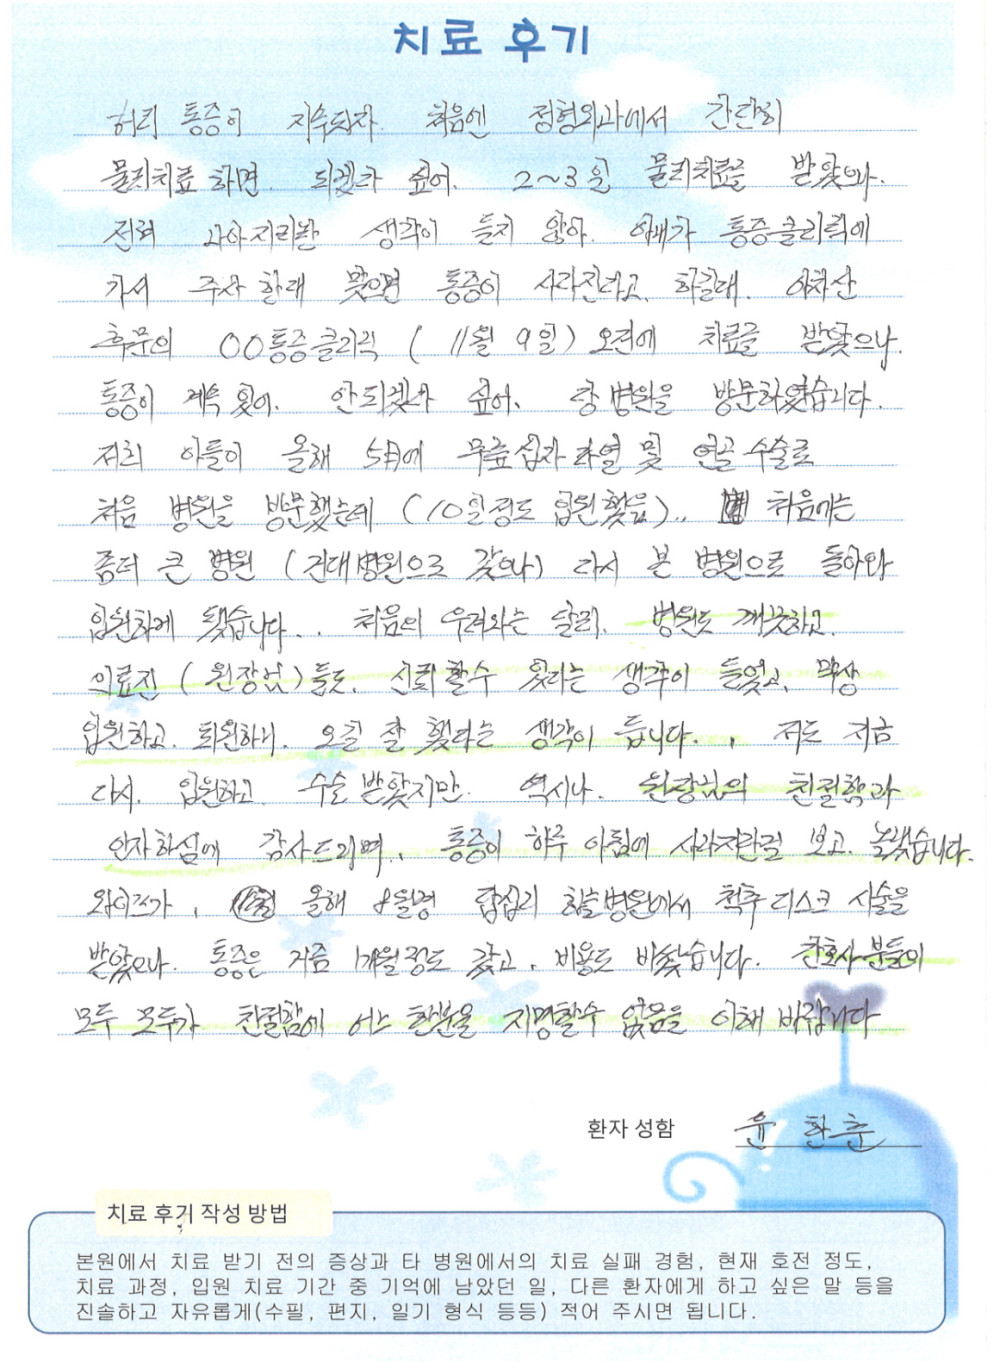 치료 후기
허리 통증이 지속되자 처음엔 정형외과에서 간단히
물리치료 하면. 되겠다 싶어. 2~3일 물리치료를 받았으나.
전혀 나아지리란 생각이 들지 않아. 아내가 통증클리닉에
가서 주사 한대 맞으면 통증이 사라진다고. 하길래. 아차산
후문의 OO통증클리닉 ( 11월 9일 ) 오전에 치료를 받았으나.
통증이 계속 있어. 안되겠다 싶어. 본 병원을 방문하였습니다.
저희 아들이 올해 5月에 무릎십자 파열 및 연골수술로
처음 병원을 방문했는데 (10일정도 입원했음).. 처음에는
좀더 큰 병원 (건대병원으로 갔으나) 다시 본 병원으로 돌아와
입원하게 됐습니다.. 처음의 우려와는 달리. 병원도 깨끗하고.
의료진 ( 원장님)들도. 신뢰할수 있다는 생각이 들었고, 막상
입원하고. 퇴원하니. 오길 잘 했다는 생각이 듭니다.. 저도 지금
다시. 입원하고. 수술 받았지만. 역시나. 원장님의 친절함과
인자하심에 감사드리며, 통증이 하루 아침에 사라지란걸 보고. 놀랬습니다.
와이프가, 올해 8월경 답십리 병원에서 척추디스크 시술을
받았으나. 통증은 지금 1개월정도 갔고, 비용도 비쌌습니다. 간호사분들이
모두 모두가 친절함에 어느 한분을 지명할수 없음을 이해 바랍니다
환자 성함 윤 한춘
치료 후기 작성 방법
본원에서 치료 받기 전의 증상과 타 병원에서의 치료 실패 경험, 현재 호전 정도,
치료 과정, 입원 치료 기간 중 기억에 남았던 일, 다른 환자에게 하고 싶은 말 등을
진솔하고 자유롭게(수필, 편지, 일기 형식 등등) 적어 주시면 됩니다.